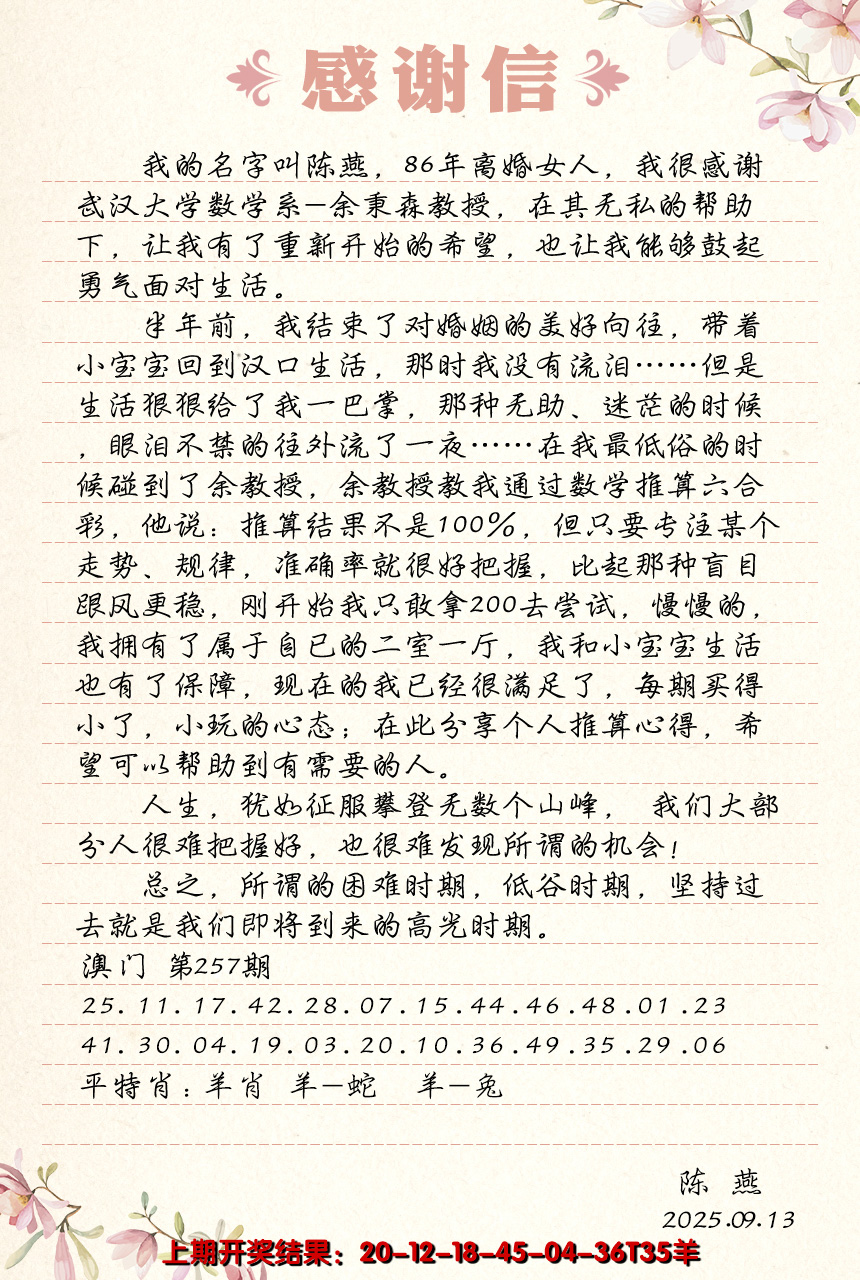 感谢信
我的名字叫陈燕，86年离婚女人，我很感谢
武汉大学数学系—余秉森教授，在其无私的帮助
下，让我有了重新开始的希望，也让我能够鼓起
勇气面对生活。
半年前，我结束了对婚姻的美好向往，带着
小宝宝回到汉口生活，那时我没有流泪……但是
生活狠狠给了我一巴掌，那种无助、迷茫的时候
，眼泪不禁的往外流了一夜……在我最低俗的时
候碰到了余教授，余教授教我通过数学推算六合
彩，他说：推算结果不是100%，但只要专注某个
走势、规律，准确率就很好把握，比起那种盲目
跟风更稳，刚开始我只敢拿200去尝试，慢慢的，
我拥有了属于自已的二室一厅，我和小宝宝生活
也有了保障，现在的我已经很满足了，每期买得
小了，小玩的心态；在此分享个人推算心得，希
望可以帮助到有需要的人。
人生，犹如征服攀登无数个山峰， 我们大部
分人很难把握好，也很难发现所谓的机会！
总之，所谓的困难时期，低谷时期，坚持过
去就是我们即将到来的高光时期。
澳门 第257期
25.11.17.42.28.07.15.44.46.48.01.23
41.30.04.19.03.20.10.36.49.35.29.06
平特肖：羊肖 羊—蛇 羊—兔
陈 燕
2025.09.13
上期开奖结果：20-12-18-45-04-36T35羊